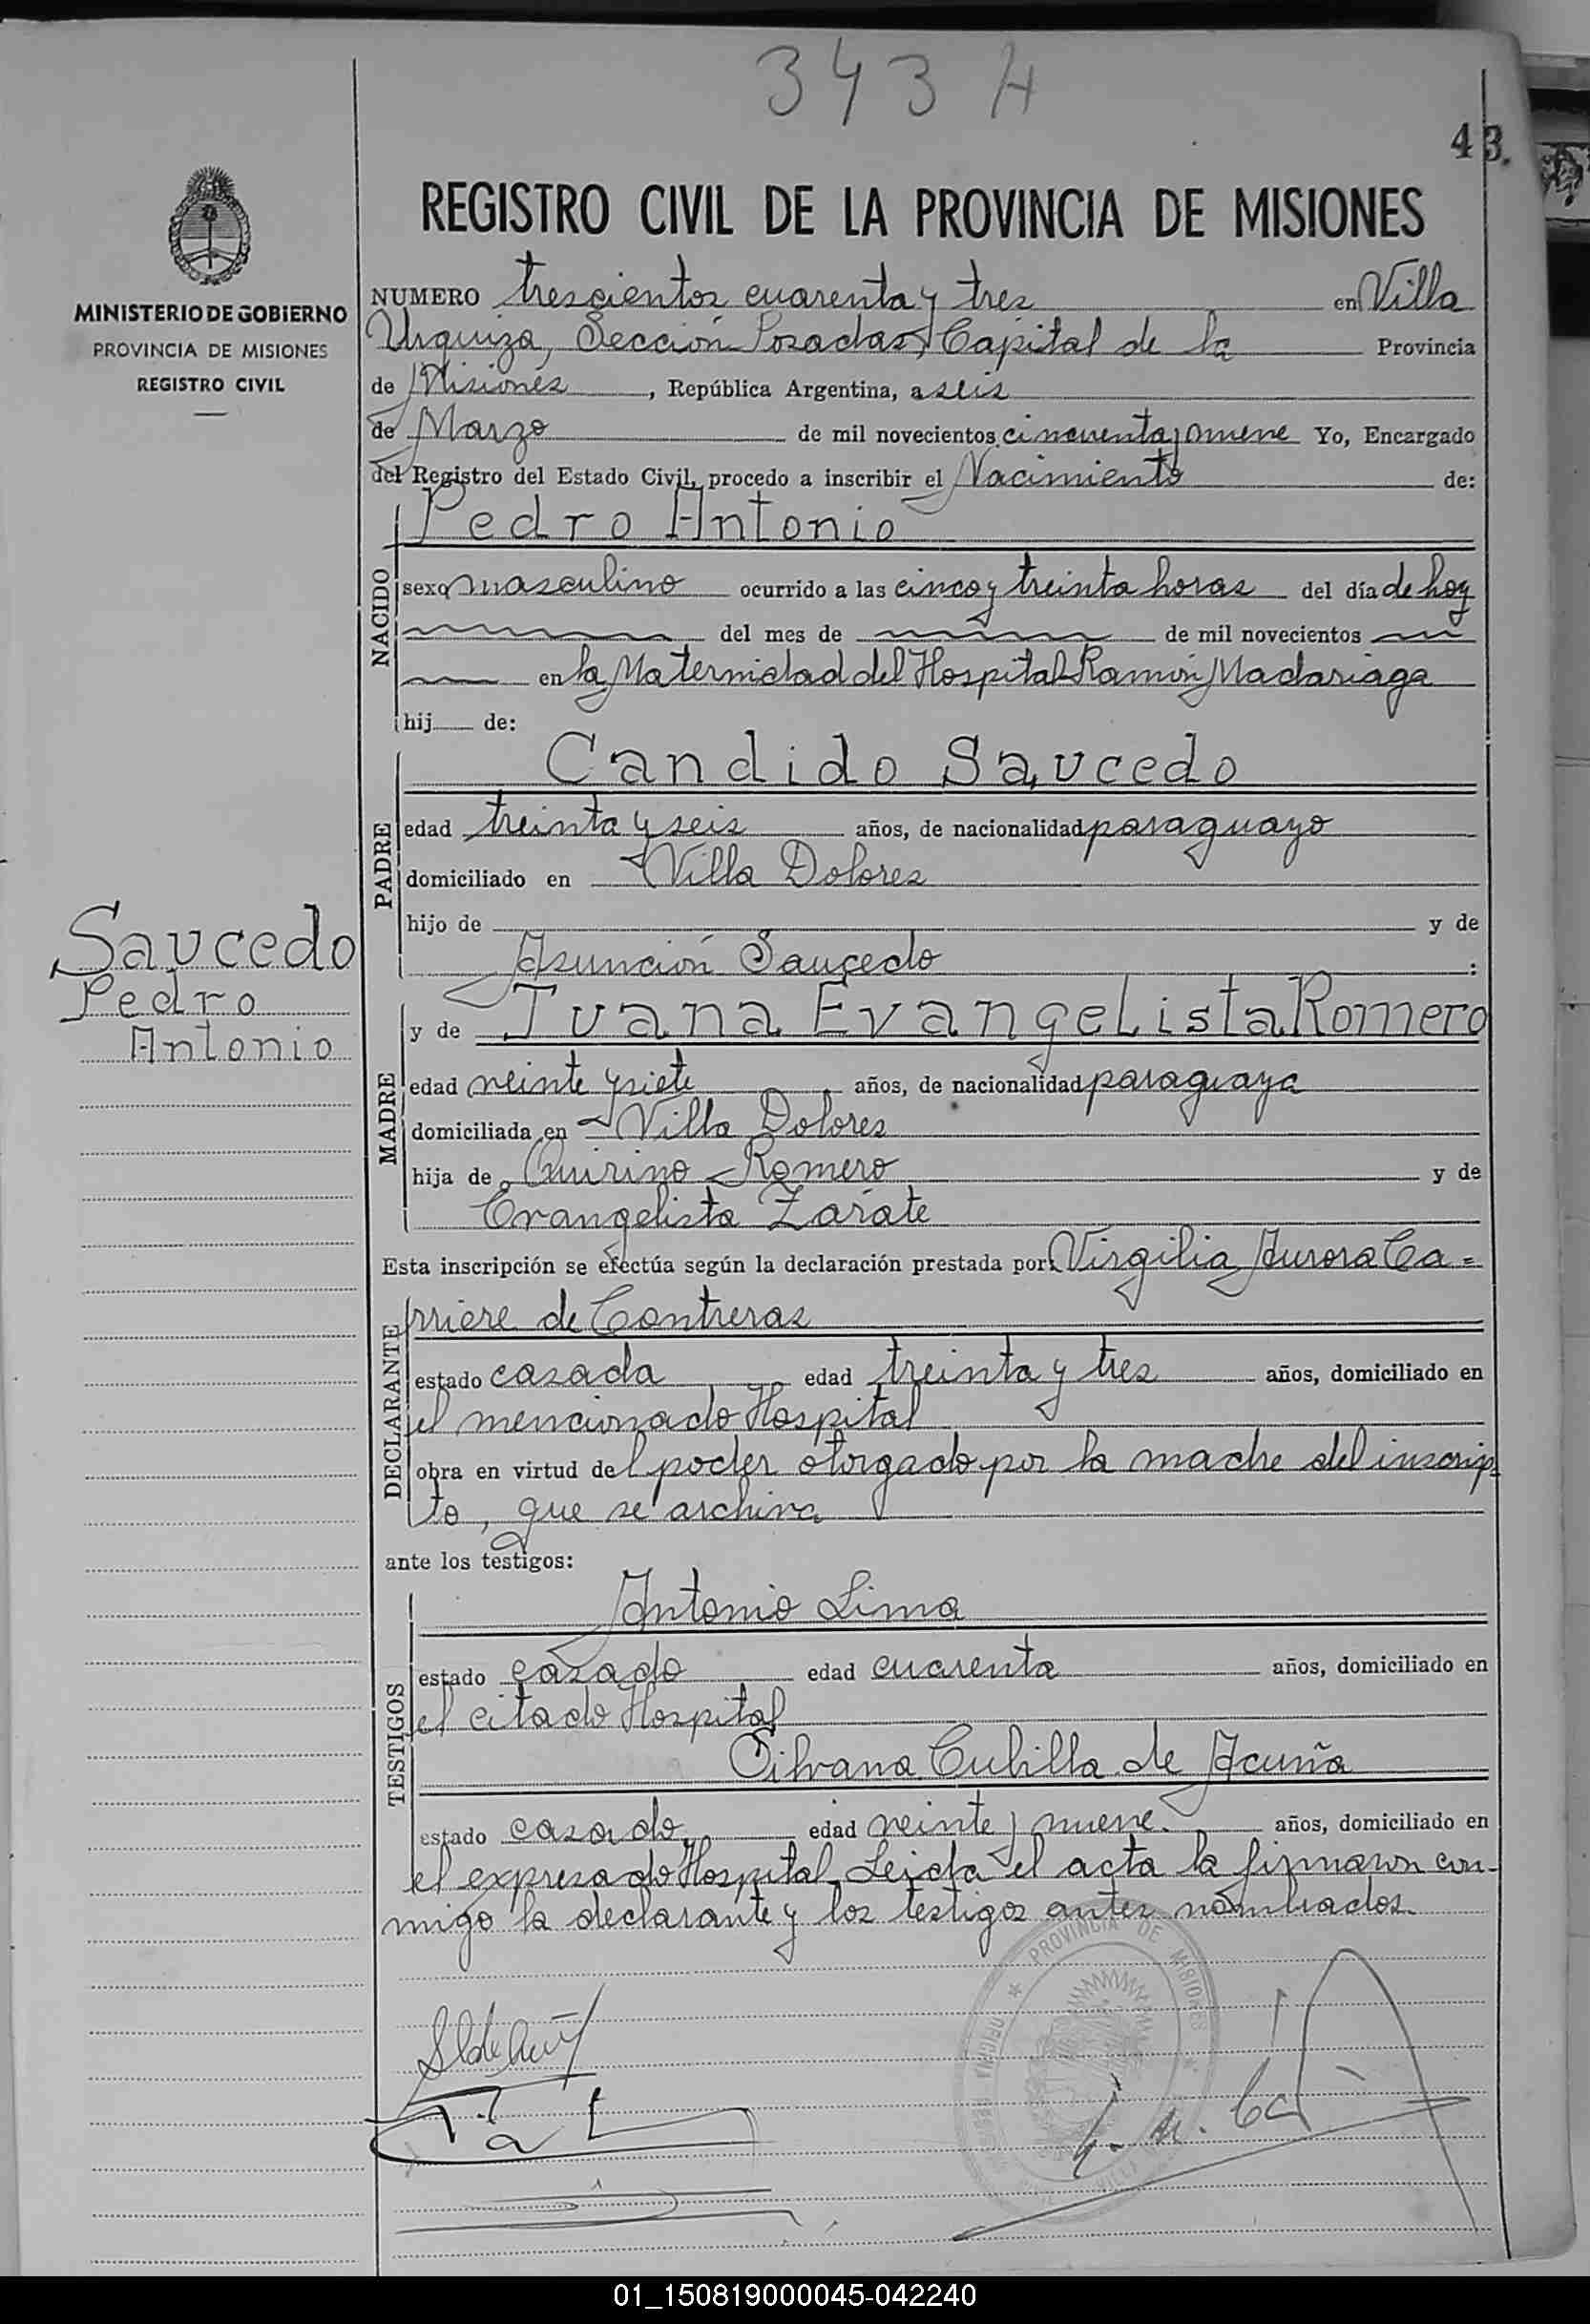 343 A
43.
REGISTRO CIVIL DE LA PROVINCIA DE MISIONES
MINISTERIO DE GOBIERNO
PROVINCIA DE MISIONES
REGISTRO CIVIL
NUMERO trescientos cuarenta y tres en Villa
Urquiza, Sección Posadas, Capital de la Provincia
de Misiones, República Argentina, a seis
de Marzo de mil novecientos cincuenta y nueve Yo, Encargado
del Registro del Estado Civil, procedo a inscribir el Nacimiento de:
Pedro Antonio
NACIDO
sexo masculino ocurrido a las cinco y treinta horas del día de hoy
del mes de de mil novecientos
en la Maternidad del Hospital Ramón Madariaga
hij de:
Candido Saucedo
PADRE
edad treinta y seis años, de nacionalidad paraguayo
domiciliado en Villa Dolores
hijo de y de
Asunción Saucedo :
Saucedo
Pedro
Antonio
y de Juana Evangelista Romero
MADRE
edad veinte y siete años, de nacionalidad paraguaya
domiciliada en Villa Dolores
hija de Quirino Romero y de
Evangelista Zarate
Esta inscripción se efectúa según la declaración prestada por: Virgilia Aurora Ca=
rriere de Contreras
DECLARANTE
estado casada edad treinta y tres años, domiciliado en
el mencionado Hospital
obra en virtud del poder otorgado por la madre del inscrip
to, que se archiva
ante los testigos:
Antonio Lima
TESTIGOS
estado casado edad cuarenta años, domiciliado en
el citado Hospital
Silvana Cubilla de Acuña
estado casado, edad veinte y nueve. años, domiciliado en
el expresado Hospital. Leida el acta la firmaron con-
migo la declarante y los testigos antes nombrados.
PROVINCIA DE MISIONES
01_150819000045-042240